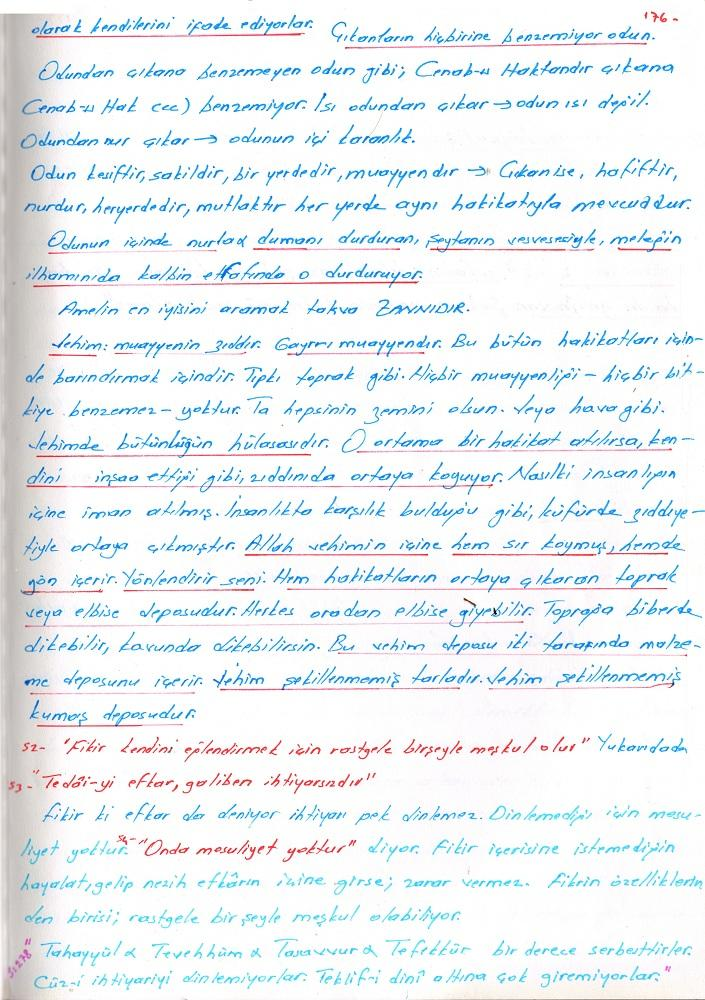 176-
olarak kendilerini ifade ediyorlar. Çıkanların hiçbirine benzemiyor odun.
Odundan çıkana benzemeyen odun gibi; Cenab-ı Haktandır çıkana
Cenab-ı Hak (cc) benzemiyor. Isı odundan çıkar → odun ısı değil.
Odundan nur çıkar → odunun içi karanlık.
Odun kesiftir, sakildir, bir yerdedir, muayyendır → Çıkan ise, hafiftir,
nurdur, heryerdedir, mutlaktır her yerde aynı hakikatıyla mevcuddur.
Odunun içinde nurla α dumanı durduran, şeytanın vesvesesiyle, meleğin
ilhamınıda kalbin etrafında o durduruyor.
Amelin en iyisini aramak takva ZANNIDIR.
Vehim: muayyenin zıddır. Gayrı muayyendır. Bu bütün hakikatları için-
de barındırmak içindir. Tıpkı toprak gibi. Hiçbir muayyenliği – hiçbir bit-
kiye benzemez – yoktur. Ta hepsinin zemini olsun. Veya hava gibi.
Vehimde bütünlüğün hülasasıdır. O ortama bir hakikat atılırsa, ken-
dini inşaa ettiği gibi, zıddınıda ortaya koyuyor. Nasılki insanlığın
içine iman atılmış. İnsanlıkta karşılık bulduğu gibi, küfürde zıddiye-
tiyle ortaya çıkmıştır. Allah vehimin içine hem sır koymuş, hemde
yön içerir. Yönlendirir seni. Hem hakikatların ortaya çıkaran toprak
veya elbise deposudur. Herkes oradan elbise giyebilir. Toprağa biberde
dikebilir, kavunda dikebilirsin. Bu vehim deposu iki tarafında malze-
me deposunu içerir. Vehim şekillenmemiş tarladır. Vehim şekillenmemiş
kumaş deposudur.
S2- "Fikir kendini eğlendirmek için rastgele birşeyle meşkul olur" Yukarıdada
S3- "Tedâi-yi efkar, galiben ihtiyarsızdır"
Fikir ki efkar da deniyor ihtiyarı pek dinlemez. Dinlemediği için mesu-
liyet yoktur. S4- "Onda mesuliyet yoktur" diyor. Fikir içerisine istemediğin
hayalat, gelip nezih efkârın içine girse; zarar vermez. Fikrin özelliklerin
den birisi; rastgele bir şeyle meşkul olabiliyor.
S:278 " Tahayyül α Tevehhüm α Tasavvur α Tefekkür bir derece serbesttirler.
Cüz-i ihtiyariyi dinlemiyorlar. Teklif-i dinî altına çok giremiyorlar."